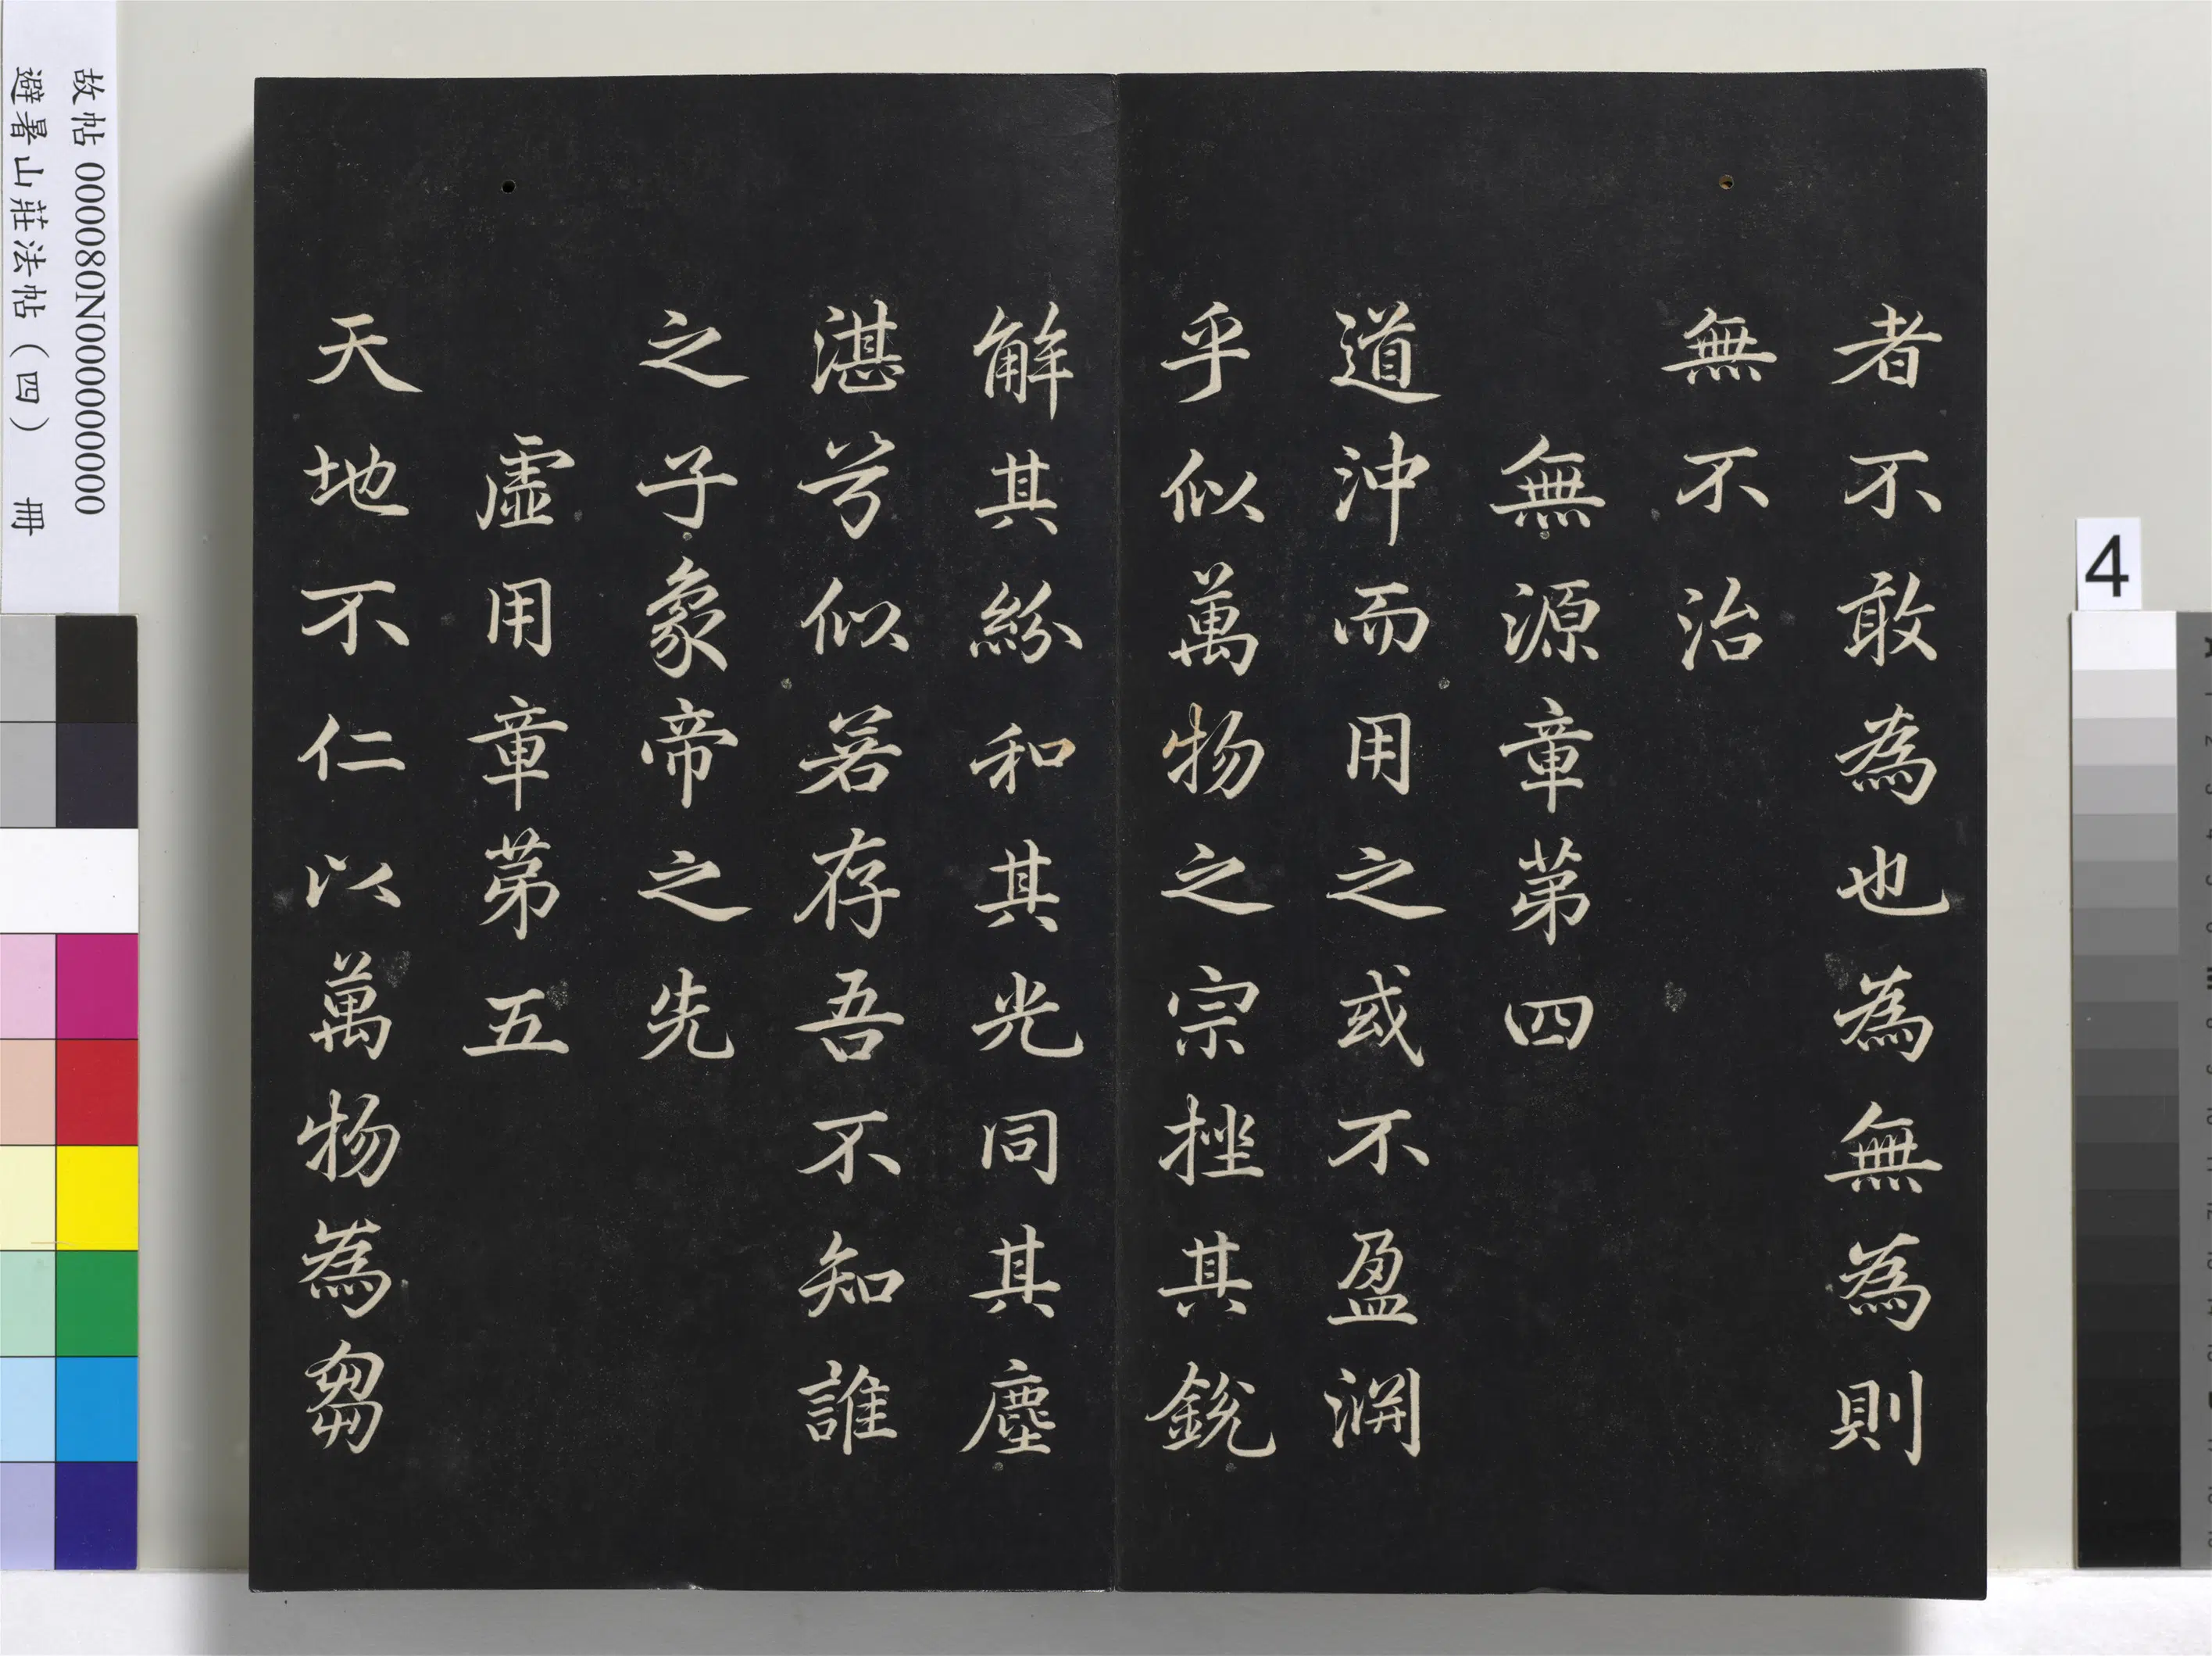 者不敢為也為無為則
無不治
無源章苐四
道沖而用之或不盈渊
乎似萬物之宗挫其銳
解其紛和其光同其塵
湛兮似若存吾不知誰
之子象帝之先
虛用章苐五
天地不仁以萬物為芻
故帖 000080N000000000
避暑山莊法帖（四） 冊
4